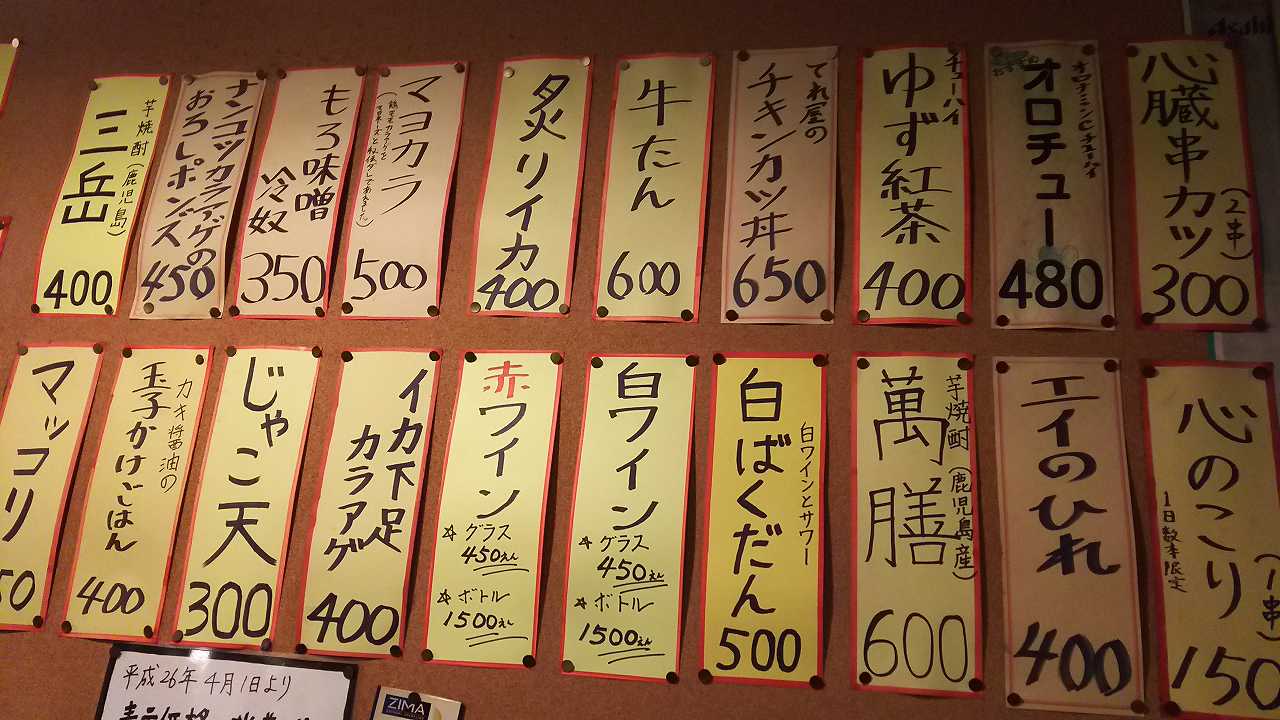 心臓串カツ
(2串)
300
オロチュー
オロナミンCチューハイ
480
チューハイ
ゆず紅茶
400
でれ屋の
チキンカツ丼
650
牛たん
600
炙りイカ
400
マヨカラ
500
もろ味噌
冷奴
350
ナンコツカラアゲの
おろしポンズ
450
芋焼酎(鹿児島)
三岳
400
心のこり
1日数本限定
(1串)
150
エイのひれ
400
芋焼酎(鹿児島産)
萬膳
600
白ワインとサワー
白ばくだん
500
白ワイン
☆グラス
450えん
☆ボトル
1500えん
赤ワイン
☆グラス
450えん
☆ボトル
1500えん
イカ下足
カラアゲ
400
じゃこ天
300
カキ醤油の
玉子かけごはん
400
マッコリ
50
平成26年4月1日より
ZIMA
Asahi